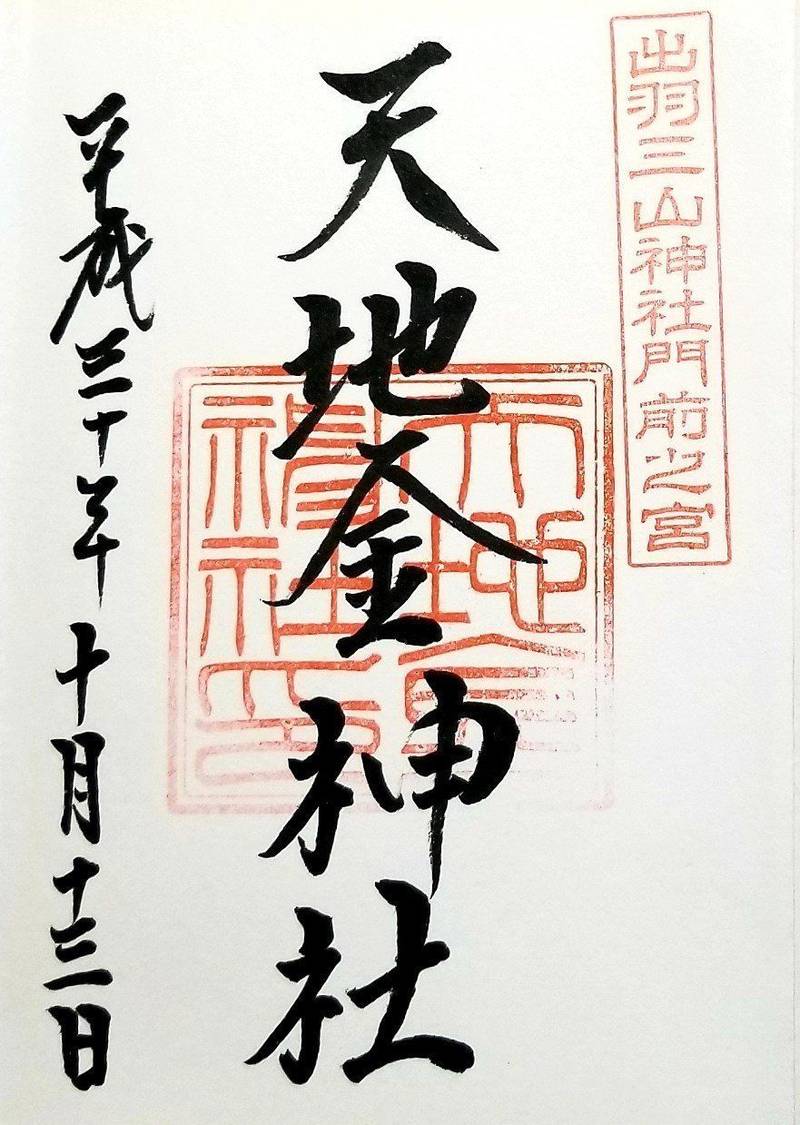 出羽三山神社門前之宮
天地金神社
天地金
神社印
平成三十年十月十三日